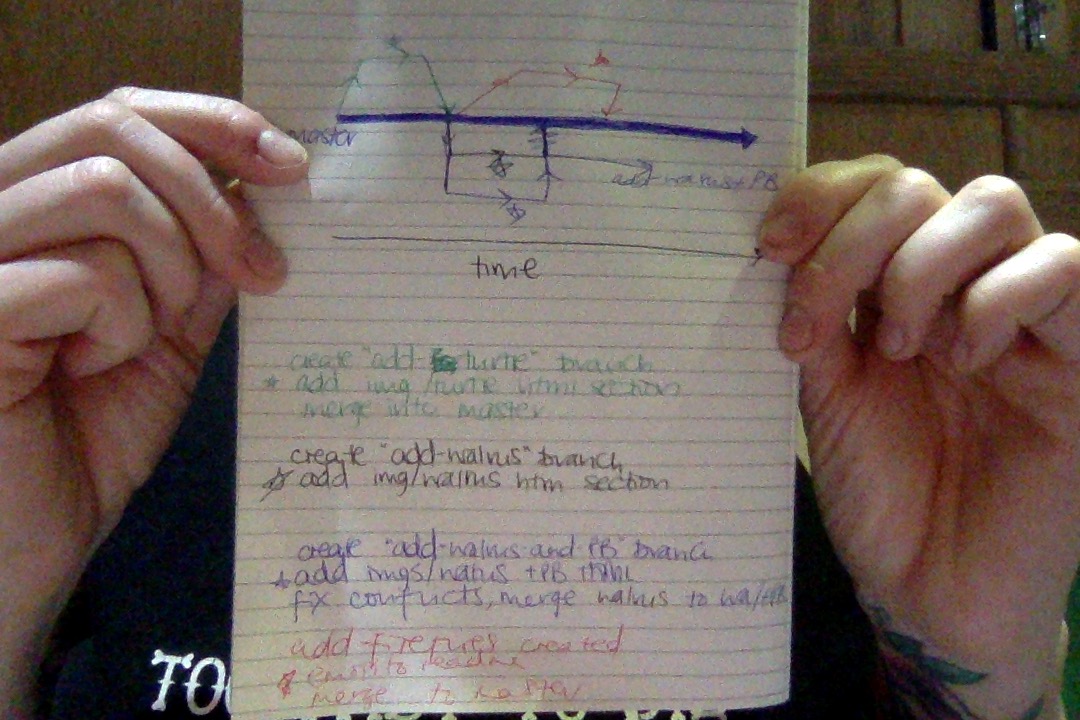 master
add-walrus+PB
time
create "add- turtle" branch
* add img/turtle html section
merge into master
create "add-walrus" branch
add img/walrus htm section
create "add-walrus-and-PB" branc
add imgs/walrus +PB html
fix conflicts, merge walrus to wa/+PB
add fire created
to readme
merge to master
TO